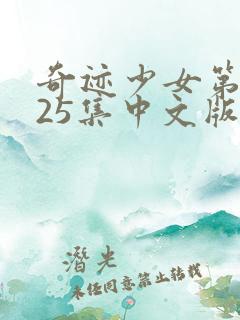 奇迹少女第
25集中文版
潜光
未经同意禁止转载